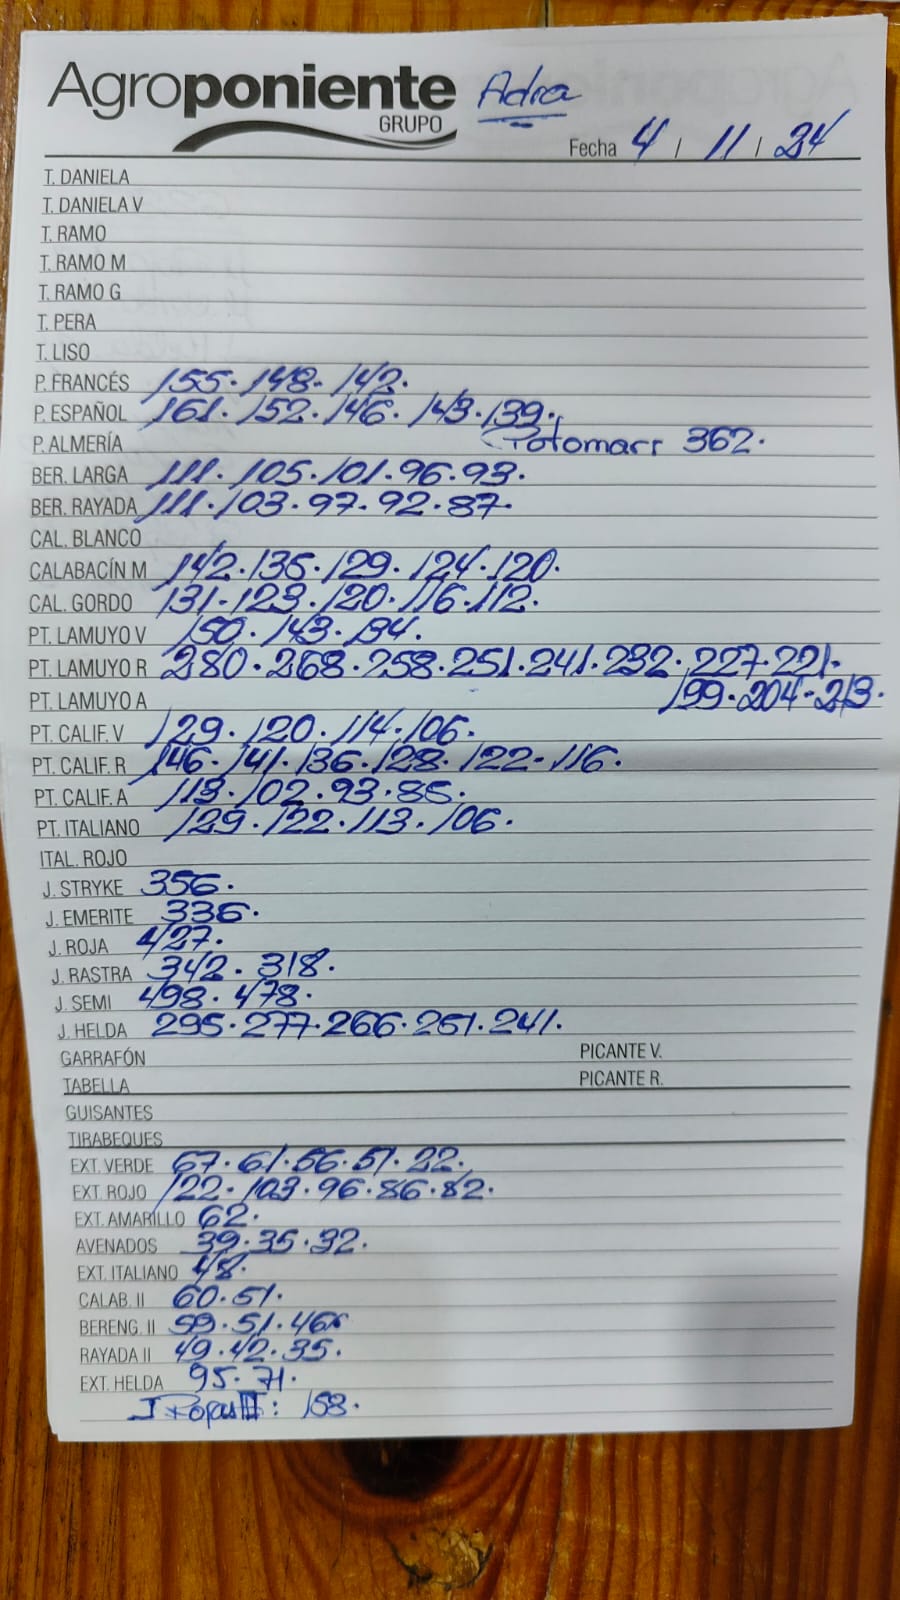 Agroponiente Adra
GRUPO
Fecha 4 / 11 / 24
T. DANIELA
T. DANIELA V
T. RAMO
T. RAMO M
T. RAMO G
T. PERA
T. LISO
P. FRANCÉS 155. 148. 142.
P. ESPAÑOL 161. 152. 146. 143. 139.
P. ALMERÍA 362.
BER. LARGA 111. 105. 101. 96. 93.
BER. RAYADA 111. 103. 97. 92. 87.
CAL. BLANCO
CALABACÍN M 142. 135. 129. 124. 120.
CAL. GORDO 131. 123. 120. 116. 112.
PT. LAMUYO V 150. 143. 134.
PT. LAMUYO R 280. 268. 258. 251. 241. 232. 227. 221.
PT. LAMUYO A 199. 204. 213.
PT. CALIF. V 129. 120. 114. 106.
PT. CALIF. R 146. 141. 136. 128. 122. 116.
PT. CALIF. A 113. 102. 93. 85.
PT. ITALIANO 129. 122. 113. 106.
ITAL. ROJO
J. STRYKE 356.
J. EMERITE 336.
J. ROJA 427.
J. RASTRA 342. 318.
J. SEMI 498. 478.
J. HELDA 295. 277. 266. 251. 241.
GARRAFÓN PICANTE V.
TABELLA PICANTE R.
GUISANTES
TIRABEQUES
EXT. VERDE 67. 61. 56. 51. 22.
EXT. ROJO 122. 103. 96. 86. 82.
EXT. AMARILLO 62.
AVENADOS 39. 35. 32.
EXT. ITALIANO 48.
CALAB. II 60. 51.
BERENG. II 59. 51. 46
RAYADA II 49. 42. 35.
EXT. HELDA 95. 71.
J Rojas II: 158.